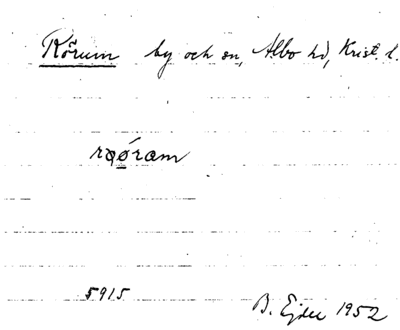 Rörum by och sn, Albo hd, Krist. l.
rǫóram
5915
B. Ejder 1952